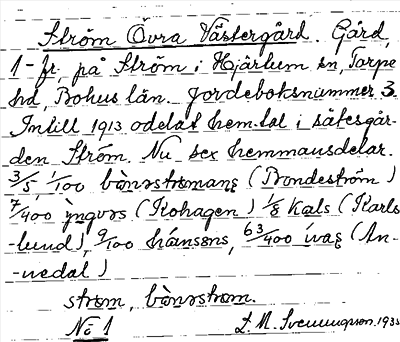 Ström Övra Västergård. Gård,
1-fr, på Ström i Hjärtum sn, Torpe
hd, Bohus län. Jordeboksnummer 3.
Intill 1913 odelat hem.tal i sätesgår-
den Ström. Nu sex hemmansdelar.
3/5, 1/100 (Bondeström)
7/400 yngvrs (Kohagen) 1/8 Kals (Karls
-lund), 9/100 hánsens, 63/400 ivas (An-
-nedal)
strøm,
No 1 L. M. Svenungson. 1935